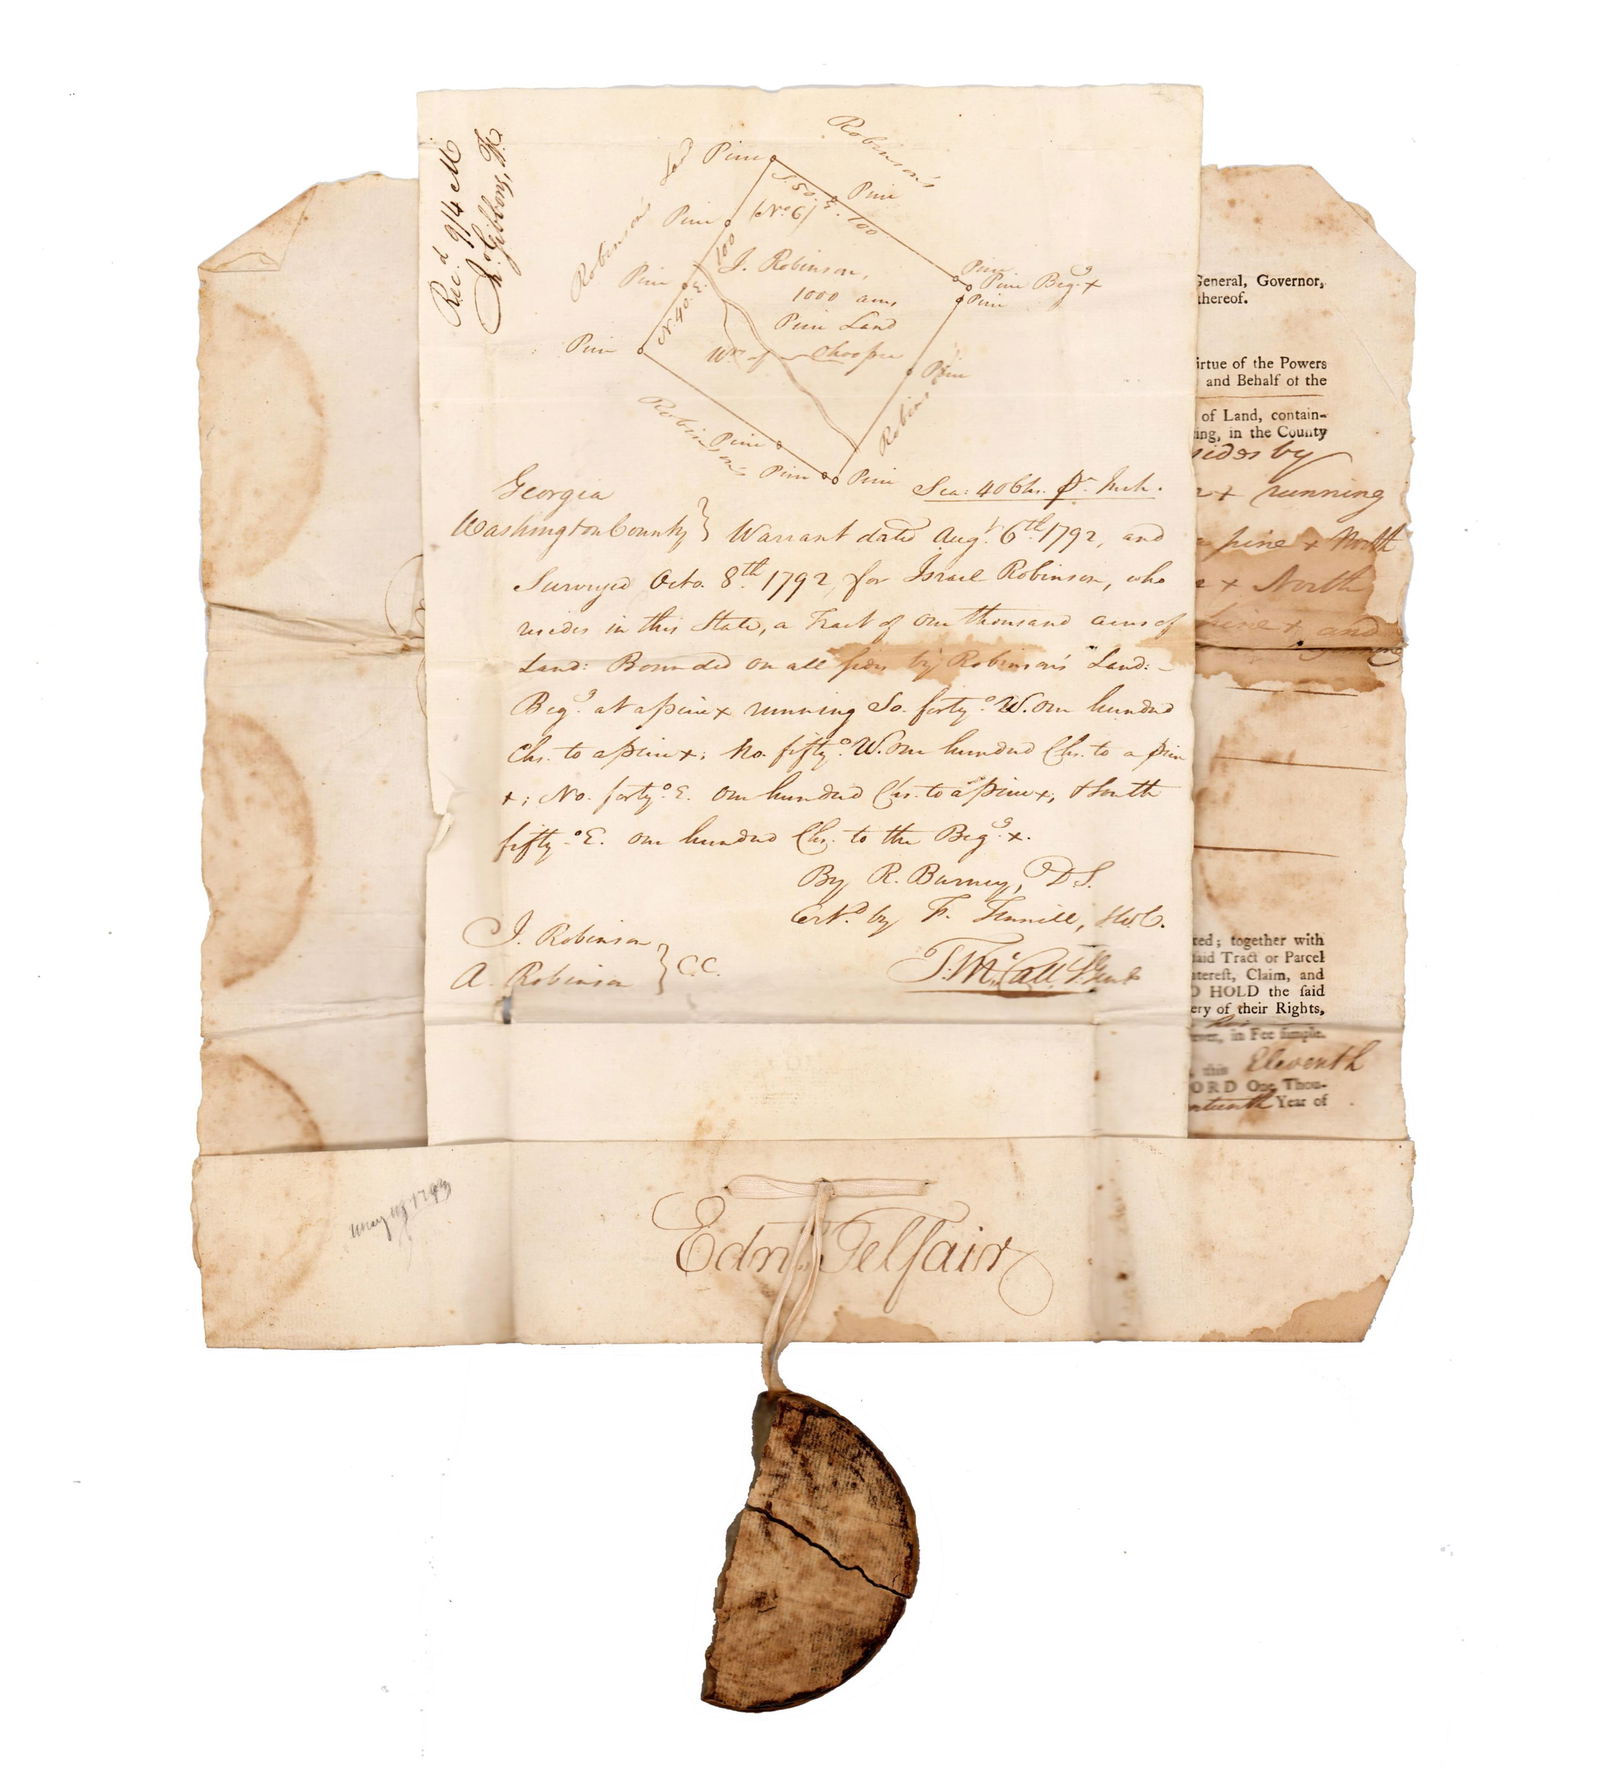 Rec.d 9/4 M
Th. Gibbons, T.R
Robinson's Land
Robinson's
Pine
S. 50. E. 100
Pine
Pine
(No. 6)
Pine
N. 40. E. 100
J. Robinson,
1000 acrs,
Pine Land
Wrs of Choopee
Pine
Pine Beg.g +
Pine
Pine
Pine
Robinson's
Robinson's
Pine
Pine
Pine
Sca: 40 Chs. pr. Inch.
Georgia
Washington County } Warrant dated Aug.t 6th. 1792, and
Surveyed Octo. 8th. 1792, for Israel Robinson, who
resides in this State, a Tract of one thousand acres of
Land: Bounded on all sides by Robinson's Land: -
Beg.g at a pine + running So. forty ° W. one hundred
Chs. to a pine +; No. fifty ° W. one hundred Chs. to a pine
+; No. forty ° E. one hundred Chs. to a pine +; & South
fifty ° E. one hundred Chs. to the Beg.g +.
By R. Barney, D.S.
Cert.d by F. Tennill, S.W.C.
J. Robinson
A. Robinson } C.C.
T. McCall, S. Genl
General, Governor,
thereof.
irtue of the Powers
and Behalf of the
of Land, contain-
ing, in the County
sides by
+ running
a pine + North
+ North
pine + and
ted; together with
said Tract or Parcel
terest, Claim, and
O HOLD the said
ery of their Rights,
his
ever, in Fee simple.
, this Eleventh
ORD One Thou-
nteenth Year of
May 11 1793
Edwd. Telfair